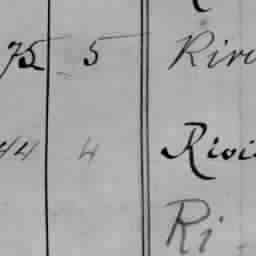 75 5 Riv
44 4 Rivi
Ri